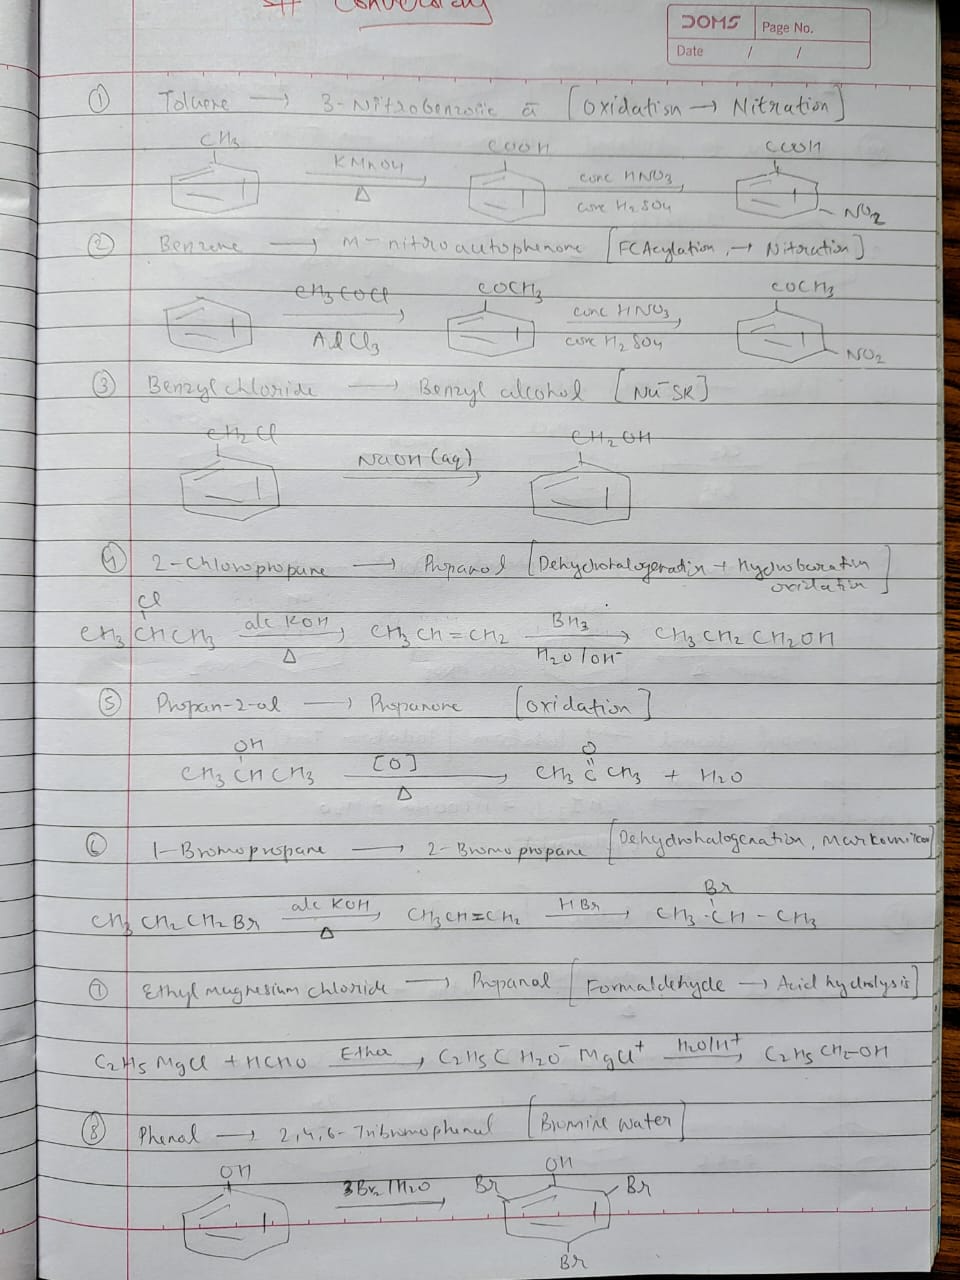 # Conversions
DOMS Page No.
Date / /
① Toluene → 3-Nitrobenzoic a [Oxidation → Nitration]
CH3 COOH COOH
KMnO4 conc HNO3
Δ conc H2SO4 NO2
② Benzene → m-nitroacetophenone [FC Acylation, → Nitration]
CH3COCl COCH3 COCH3
conc HNO3
AlCl3 conc H2SO4 NO2
③ Benzyl chloride → Benzyl alcohol [Nu⁻ SR]
CH2Cl CH2OH
NaOH (aq)
④ 2-Chloropropane → Propanol [Dehydrohalogenation + Hydroboration
oxidation]
Cl
CH3 CH CH3 alc KOH → CH3 CH = CH2 BH3 → CH3 CH2 CH2OH
Δ H2O / OH⁻
⑤ Propan-2-ol → Propanone [oxidation]
OH O
CH3 CH CH3 [O] → CH3 C CH3 + H2O
Δ
⑥ 1-Bromopropane → 2-Bromopropane [Dehydrohalogenation,
Br
CH3 CH2 CH2 Br alc KOH → CH3CH=CH2 HBr → CH3 - CH - CH3
Δ
⑦ Ethyl magnesium chloride → Propanol [Formaldehyde → Acid hydrolysis]
C2H5 MgCl + HCHO Ether → C2H5 C H2O⁻ MgCl⁺ H2O/H⁺ → C2H5 CH2-OH
⑧ Phenol → 2,4,6-Tribromophenol [Bromine water]
OH OH
3Br2 / H2O Br Br
Br